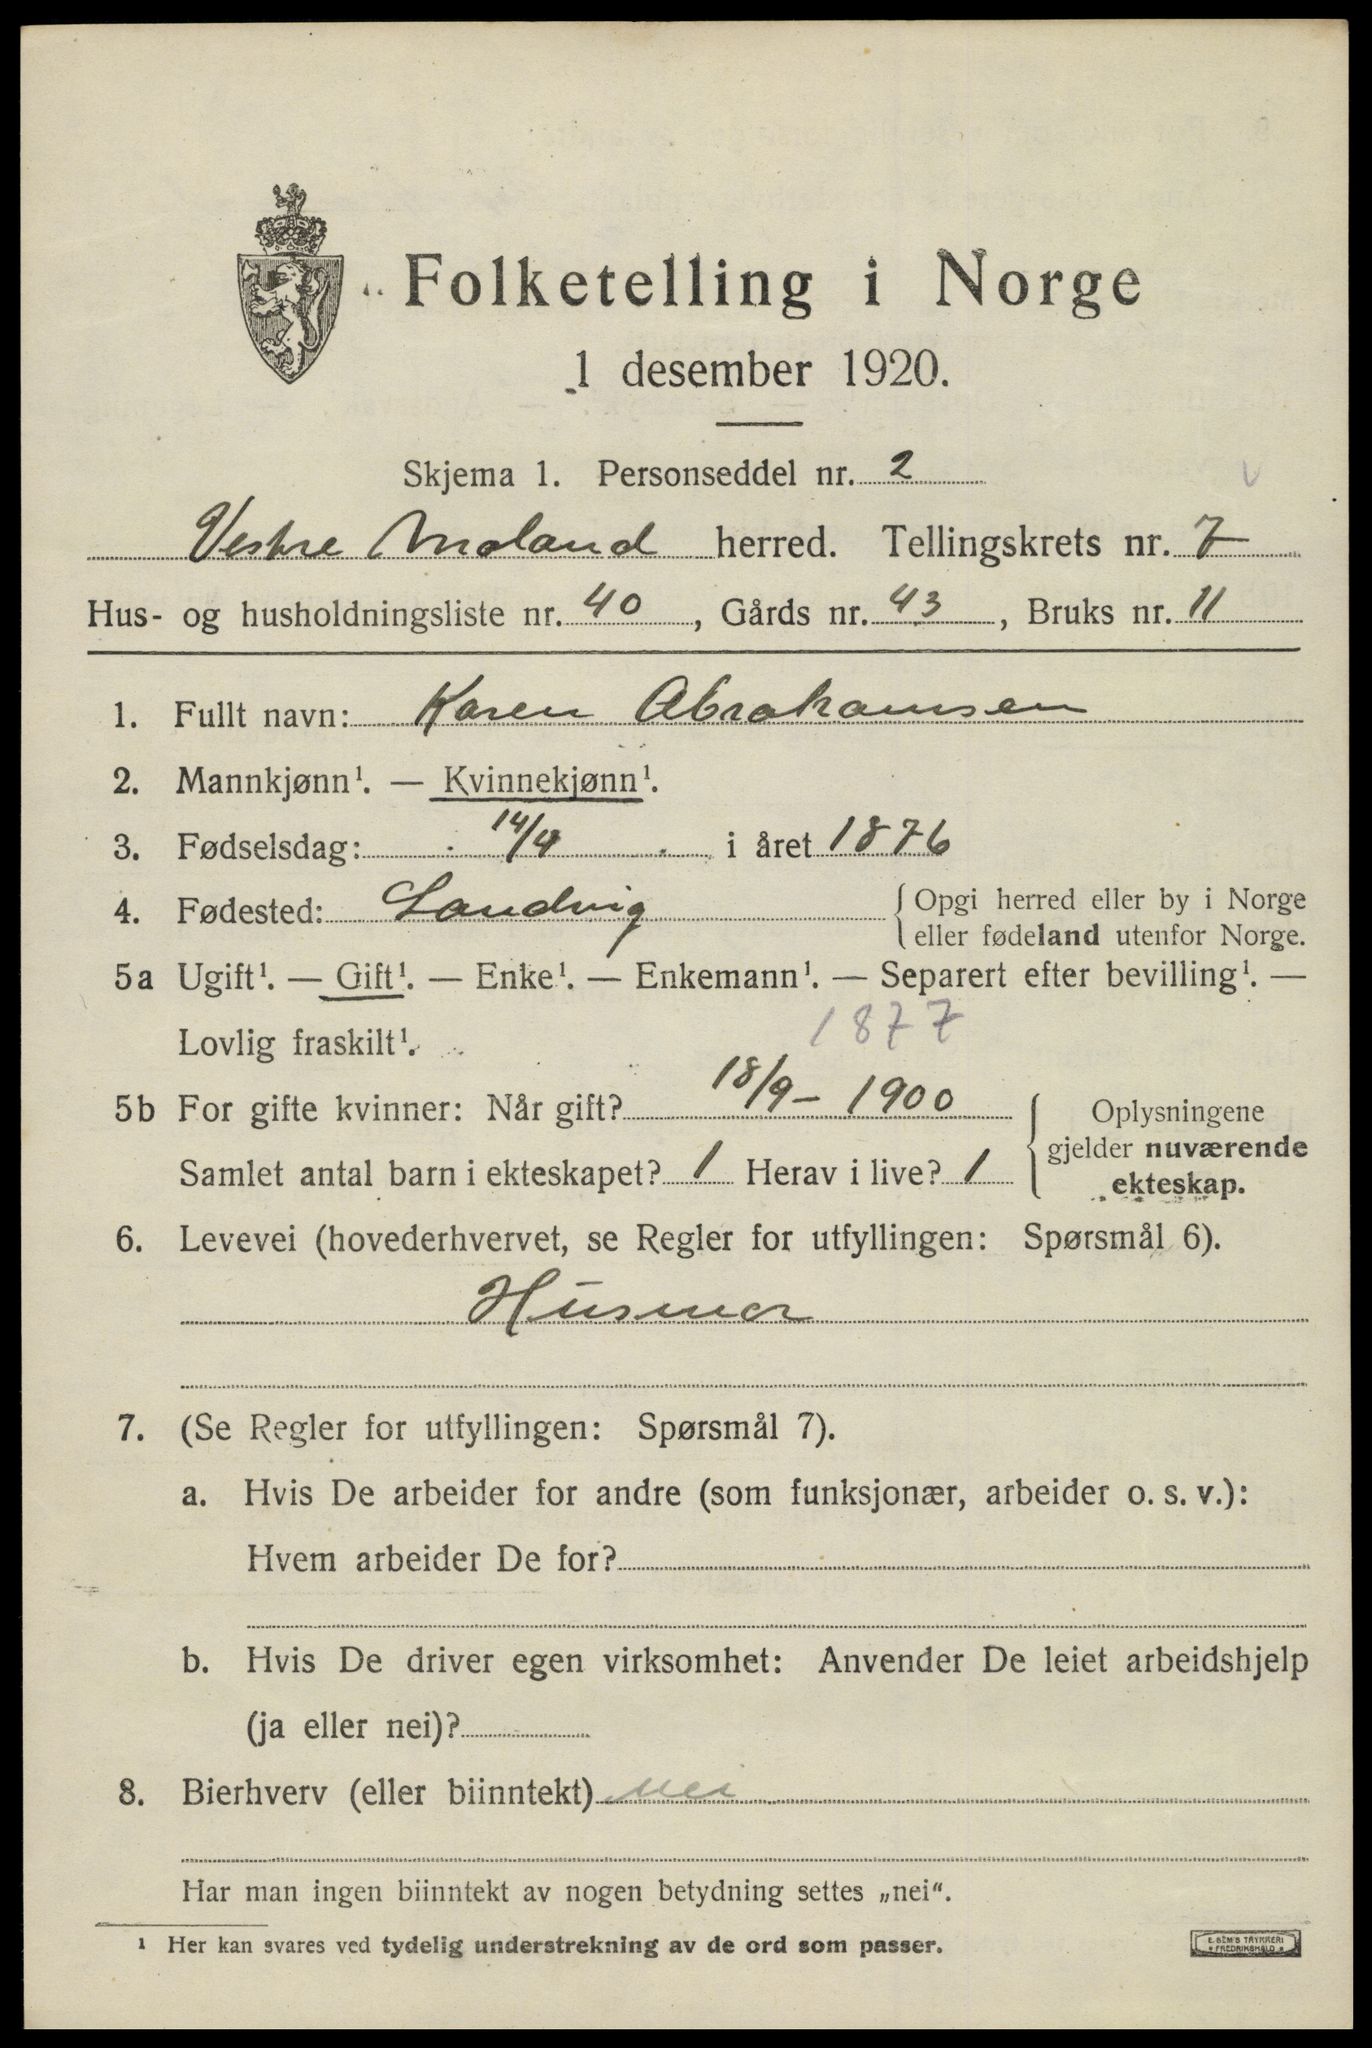 Folketelling i Norge
1 desember 1920.
Skjema 1. Personseddel nr. 2
Vestre Moland herred. Tellingskrets nr. 7
Hus- og husholdningsliste nr. 40, Gårds nr. 43, Bruks nr. 11
1. Fullt navn: Karen Abrahamsen
2. Mannkjønn¹. — Kvinnekjønn¹.
3. Fødselsdag: 14/4 i året 1876
4. Fødested: Landvig { Opgi herred eller by i Norge
eller fødeland utenfor Norge.
5a Ugift¹. — Gift¹. — Enke¹. — Enkemann¹. — Separert efter bevilling¹. —
Lovlig fraskilt¹. 1877
5b For gifte kvinner: Når gift? 18/9 – 1900
Samlet antal barn i ekteskapet? 1 Herav i live? 1
Oplysningene
gjelder nuværende
ekteskap.
6. Levevei (hovederhvervet, se Regler for utfyllingen: Spørsmål 6).
Husmor
7. (Se Regler for utfyllingen: Spørsmål 7).
a. Hvis De arbeider for andre (som funksjonær, arbeider o. s. v.):
Hvem arbeider De for?
b. Hvis De driver egen virksomhet: Anvender De leiet arbeidshjelp
(ja eller nei)?
8. Bierhverv (eller biinntekt) Nei
Har man ingen biinntekt av nogen betydning settes „nei“.
¹ Her kan svares ved tydelig understrekning av de ord som passer.
E. SEM'S TRYKKERI
FREDRIKSHALD